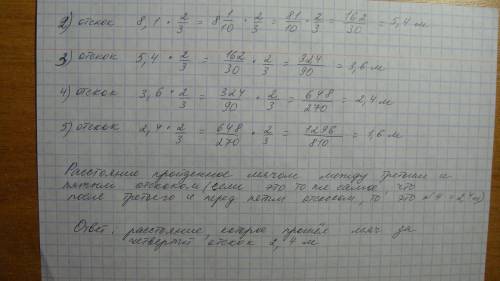 2) отскок 8,1 · 2/3 = 8 1/10 · 2/3 = 81/10 · 2/3 = 162/30 = 5,4 м
3) отскок 5,4 · 2/3 = 162/30 · 2/3 = 324/90 = 3,6 м
4) отскок 3,6 · 2/3 = 324/90 · 2/3 = 648/270 = 2,4 м
5) отскок 2,4 · 2/3 = 648/270 · 2/3 = 1296/810 = 1,6 м
Расстояние пройденное мячом между третьим и
пятым отскоком (если это то же самое, что
после третьего и перед пятым отскоком, то это № 4 = 2,4 м)
Ответ: расстояние, которое прошёл мяч за
четвертый отскок 2,4 м